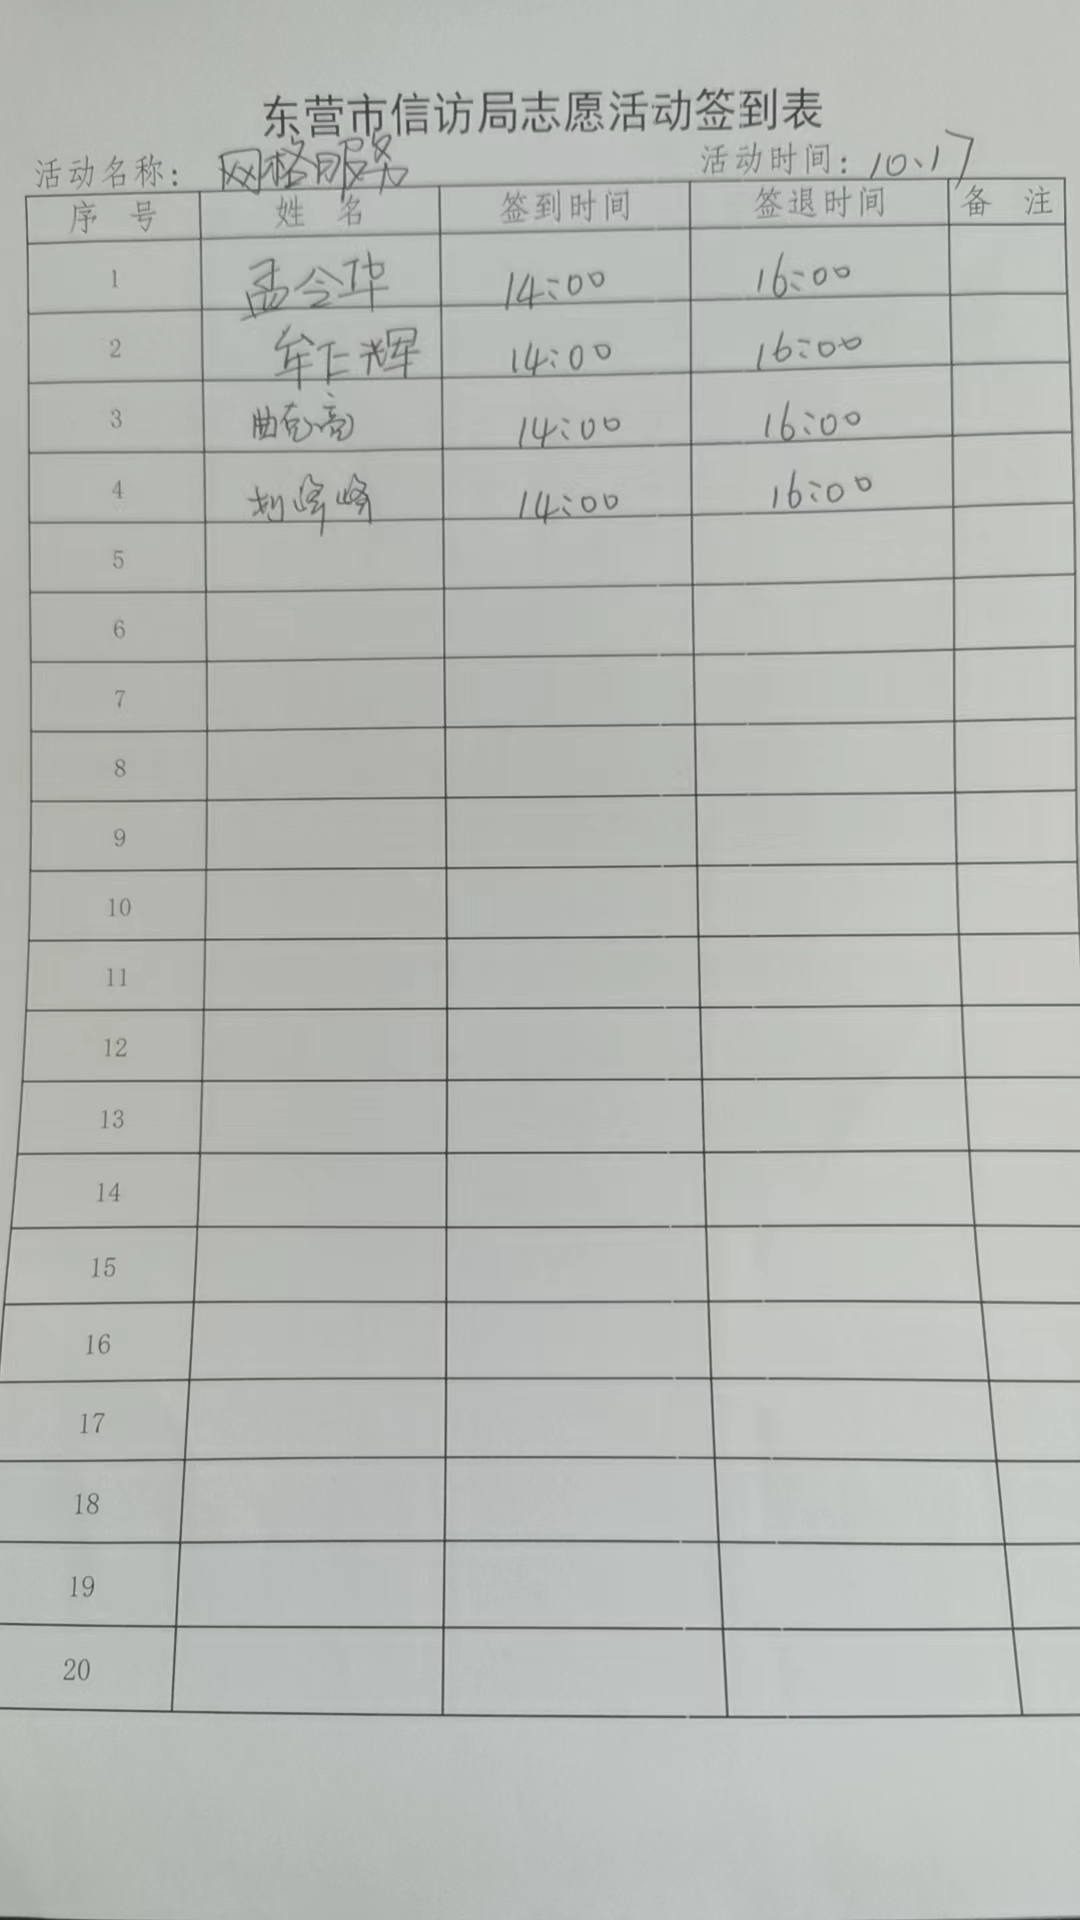 东营市信访局志愿活动签到表
活动名称：网格服务 活动时间：10、17
序 号 姓 名 签到时间 签退时间 备 注
1 孟令华 14:00 16:00
2 牟仁辉 14:00 16:00
3 曲克亮 14:00 16:00
4 刘峰峰 14:00 16:00
5
6
7
8
9
10
11
12
13
14
15
16
17
18
19
20